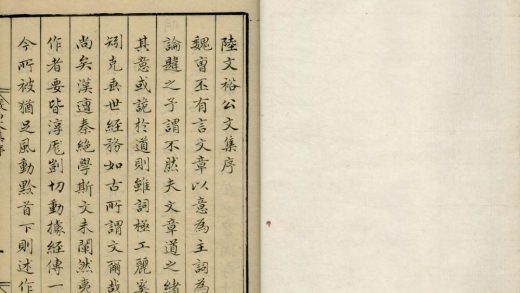 陸文裕公文集序
魏曹丕有言文章以意為主詞為
論髓之予謂不然夫文章道之緒
其意或詭於道則雖詞極工麗奚
矧克垂世經務如古所謂文爾哉
尚矣漢邇秦絶學斯文未闡然夷
作者要皆淳厖剴切動據經傳一
今所被猶足風動黔首下則述作